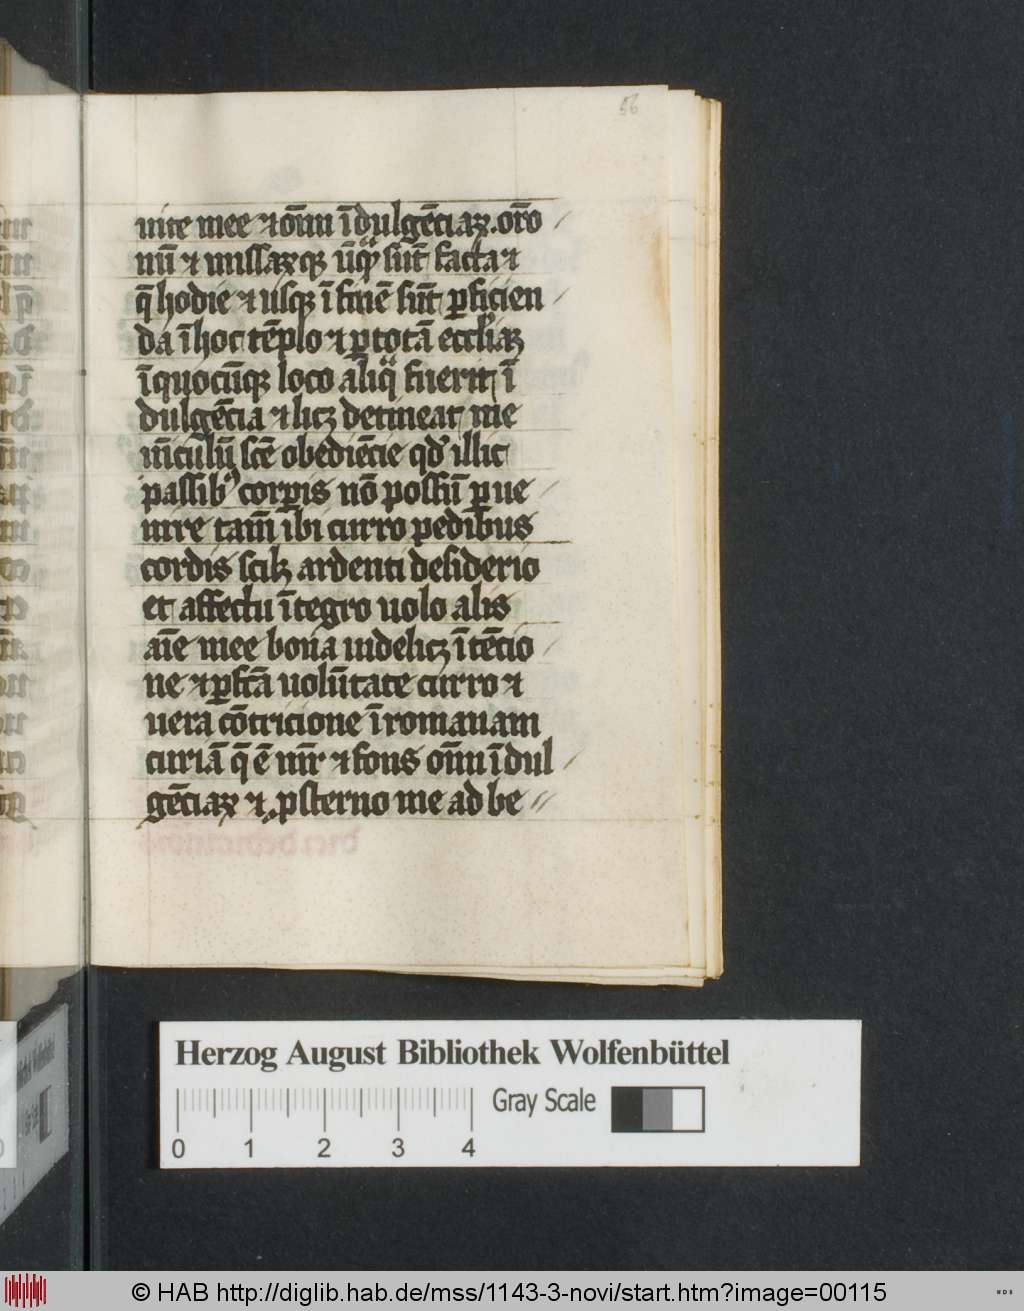 56
nire mee ⁊ om̄iu īdulgēciaꝝ. or̄o
nū ⁊ missaꝝqꝫ sūt facta ⁊
q̄ hodie ⁊ usqꝫ ī finē sūt ꝑficien
da ī hoc tēplo ⁊ ꝑ totā eccl̄iaꝫ
ī quocūqꝫ loco aliq̄ fuerit ī
dulgēcia ⁊ licꝫ detineat me
scē obediēcie qd̓ illic
passibꝰ corꝑis nō possū ꝑue
nire tam̄ ibi curro pedibus
cordis scilꝫ ardenti desiderio
et affectu ītegro uolo alis
aīe mee bona uidelicꝫ ītēcio
ne ⁊ ꝑfc̄a uolūtate curro ⁊
uera cōtricione ī romanam
curiā q̄ ē mr̄ ⁊ fons om̄iu īdul
gēciaꝝ ⁊ ꝓsterno me ad be
Herzog August Bibliothek Wolfenbüttel
Gray Scale
0 1 2 3 4
© HAB http://diglib.hab.de/mss/1143-3-novi/start.htm?image=00115